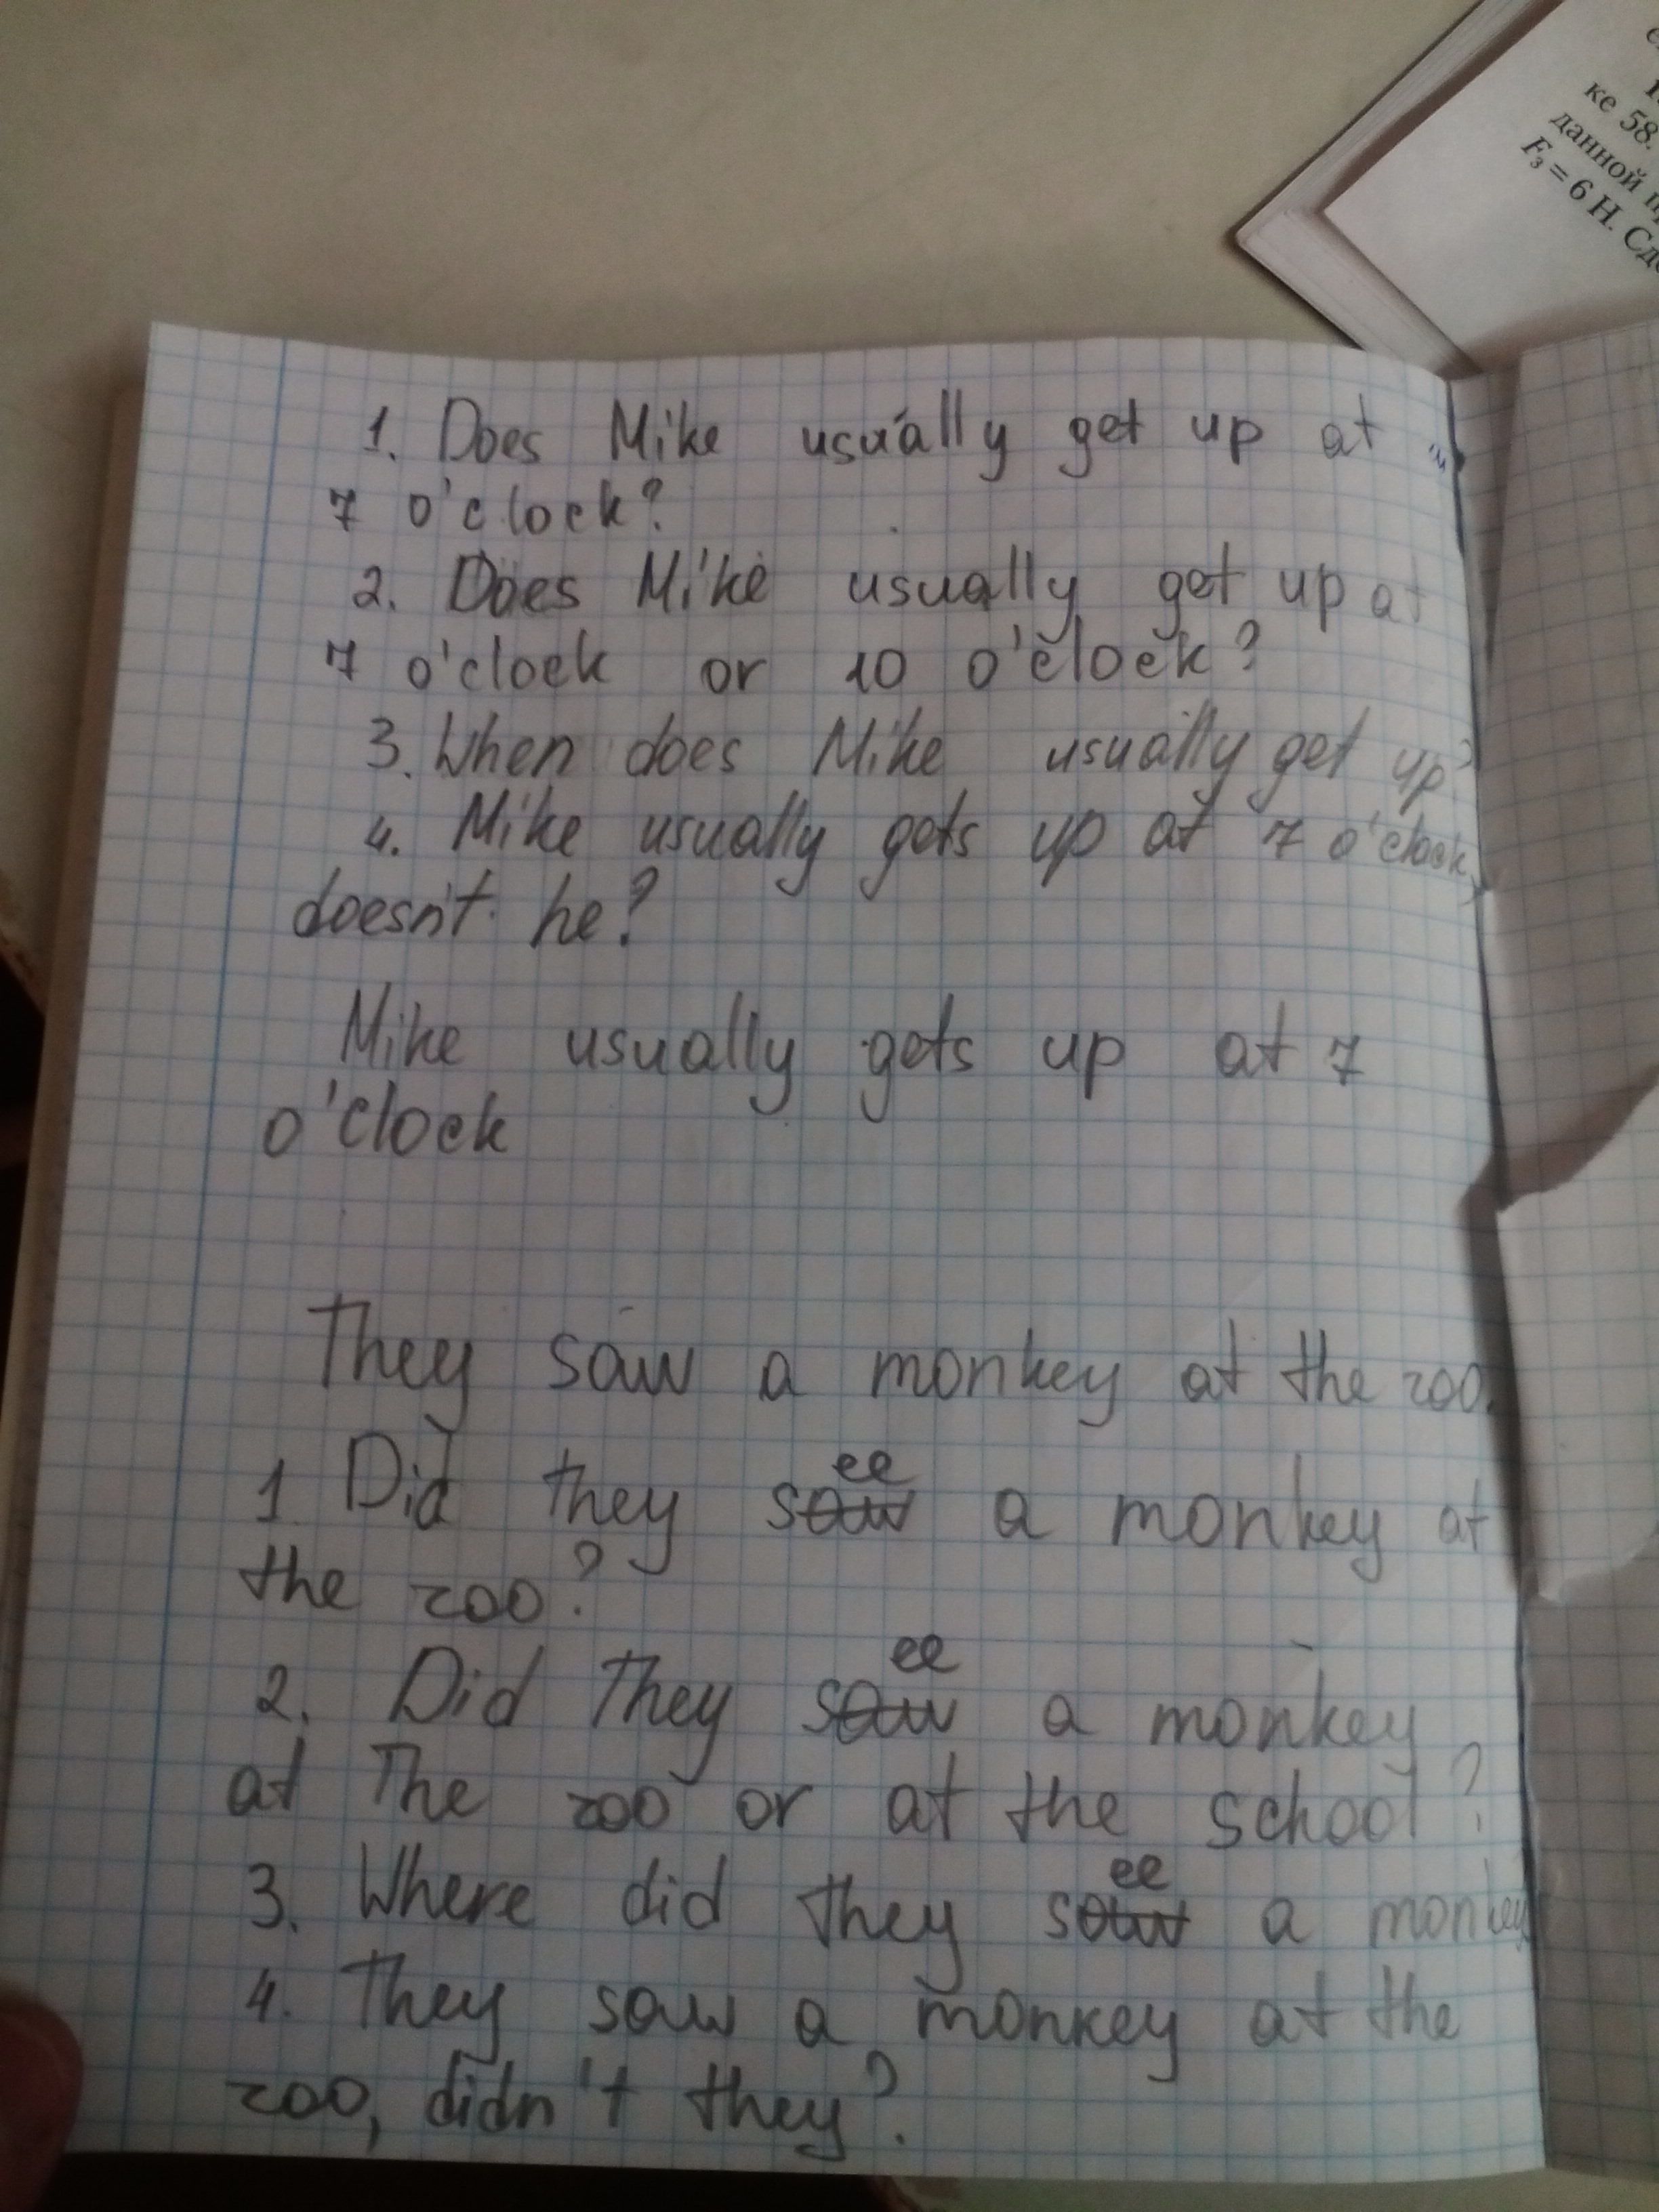 ке 58.
данной
F₃ = 6 Н.
1. Does Mike usually get up at
7 o'clock?
2. Does Mike usually get up at
7 o'clock or 10 o'clock?
3. When does Mike usually get up?
4. Mike usually gets up at 7 o'clock,
doesn't he?
Mike usually gets up at 7
o'clock
They saw a monkey at the zoo.
1 Did they see a monkey at
the zoo?
2. Did They see a monkey
at The zoo or at the school?
3. Where did they see a monkey
4. They saw a monkey at the
zoo, didn't they?